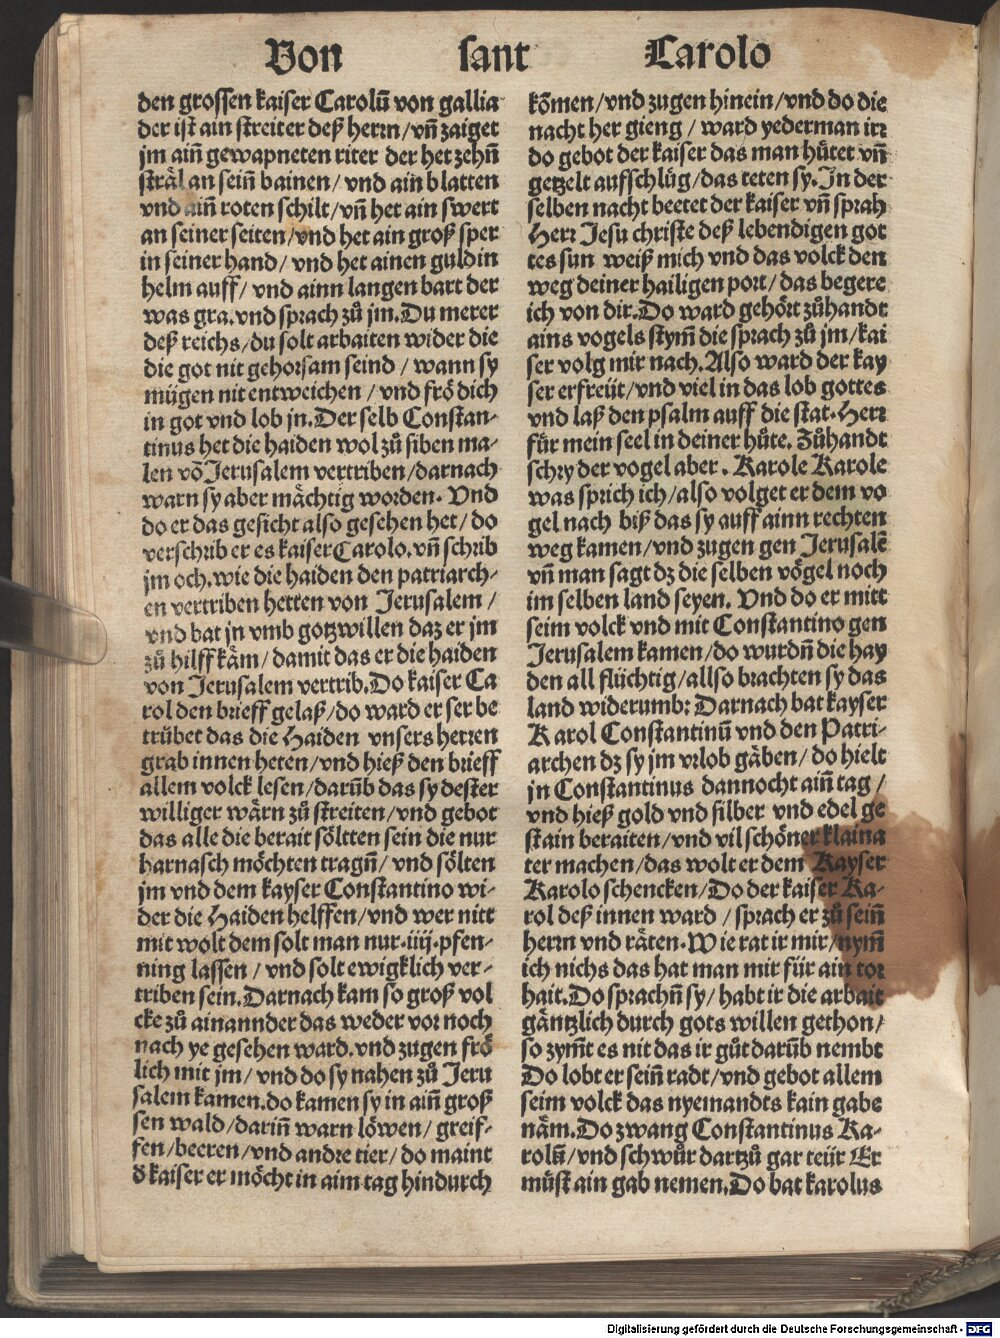 Von sant Carolo
den grossen kaiser Carolū von gallia
der ist ain streiter deß herrn/vn̄ zaiget
jm ain̄ gewapneten riter der het zehn̄
sträl an sein̄ bainen/vnd ain blatten
vnd ain̄ roten schilt/vn̄ het ain swert
an seiner seiten/vnd het ain groß sper
in seiner hand/vnd het ainen guldin
helm auff/vnd ainn langen bart der
was gra.vnd sprach zů jm.Du merer
deß reichs/du solt arbaiten wider die
die got nit gehorsam seind/wann sy
mügen nit entweichen/vnd frö dich
in got vnd lob jn.Der selb Constan-
tinus het die haiden wol zů siben ma-
len vō Jerusalem vertriben/darnach
warn sy aber mächtig worden. Vnd
do er das gesicht also gesehen het/do
verschrib er es kaiser Carolo.vn̄ schrib
jm och.wie die haiden den patriarch-
en vertriben hetten von Jerusalem/
vnd bat jn vmb gotzwillen daz er jm
zů hilff käm/damit das er die haiden
von Jerusalem vertrib.Do kaiser Ca
rol den brieff gelaß/do ward er ser be
trübet das die Haiden vnsers herren
grab innen heten/vnd hieß den brieff
allem volck lesen/darūb das sy dester
williger wärn zů streiten/vnd gebot
das alle die berait söltten sein die nur
harnasch möchten tragn̄/vnd sölten
jm vnd dem kayser Constantino wi-
der die Haiden helffen/vnd wer nitt
mit wolt dem solt man nur.iiij.pfen-
ning lassen/vnd solt ewigklich ver-
triben sein.Darnach kam so groß vol
cke zů ainannder das weder vor noch
nach ye gesehen ward.vnd zugen frö
lich mit jm/vnd do sy nahen zů Jeru
salem kamen.do kamen sy in ain̄ groß
sen wald/darin̄ warn löwen/greif-
fen/beeren/vnd andre tier/do maint
d̄ kaiser er möcht in aim tag hindurch
kōmen/vnd zugen hinein/vnd do die
nacht her gieng/ward yederman irr
do gebot der kaiser das man hůtet vn̄
getzelt auffschlůg/das teten sy.In der
selben nacht beetet der kaiser vn̄ sprah
Herr Jesu christe deß lebendigen got
tes sun weiß mich vnd das volck den
weg deiner hailigen port/das begere
ich von dir.Do ward gehört zůhandt
ains vogels stym̄ die sprach zů jm/kai
ser volg mir nach.Also ward der kay
ser erfreüt/vnd viel in das lob gottes
vnd laß den psalm auff die stat.Herr
für mein seel in deiner hůte. Zůhandt
schry der vogel aber. Karole Karole
was sprich ich/also volget er dem vo
gel nach biß das sy auff ainn rechten
weg kamen/vnd zugen gen Jerusalē
vn̄ man sagt dz die selben vögel noch
im selben land seyen. Vnd do er mitt
seim volck vnd mit Constantino gen
Jerusalem kamen/do wurdn̄ die hay
den all flüchtig/allso brachten sy das
land widerumb: Darnach bat kayser
Karol Constantinū vnd den Patri-
archen dz sy jm vrlob gäben/do hielt
jn Constantinus dannocht ain̄ tag/
vnd hieß gold vnd silber vnd edel ge
stain beraiten/vnd vil schöner klaina
ter machen/das wolt er dem Kayser
Karolo schencken/Do der kaiser Ka-
rol deß innen ward/sprach er zů sein̄
herrn vnd räten.Wie rat ir mir/nym̄
ich nichs das hat man mir für ain tor
hait.Do sprachn̄ sy/habt ir die arbait
gäntzlich durch gots willen gethon/
so zymt es nit das ir gůt darūb nembt
Do lobt er sein̄ radt/vnd gebot allem
seim volck das nyemandts kain gabe
näm.Do zwang Constantinus Ka-
rolū/vnd schwůr dartzů gar teür Er
můst ain gab nemen.Do bat karolus
Digitalisierung gefördert durch die Deutsche Forschungsgemeinschaft - DFG